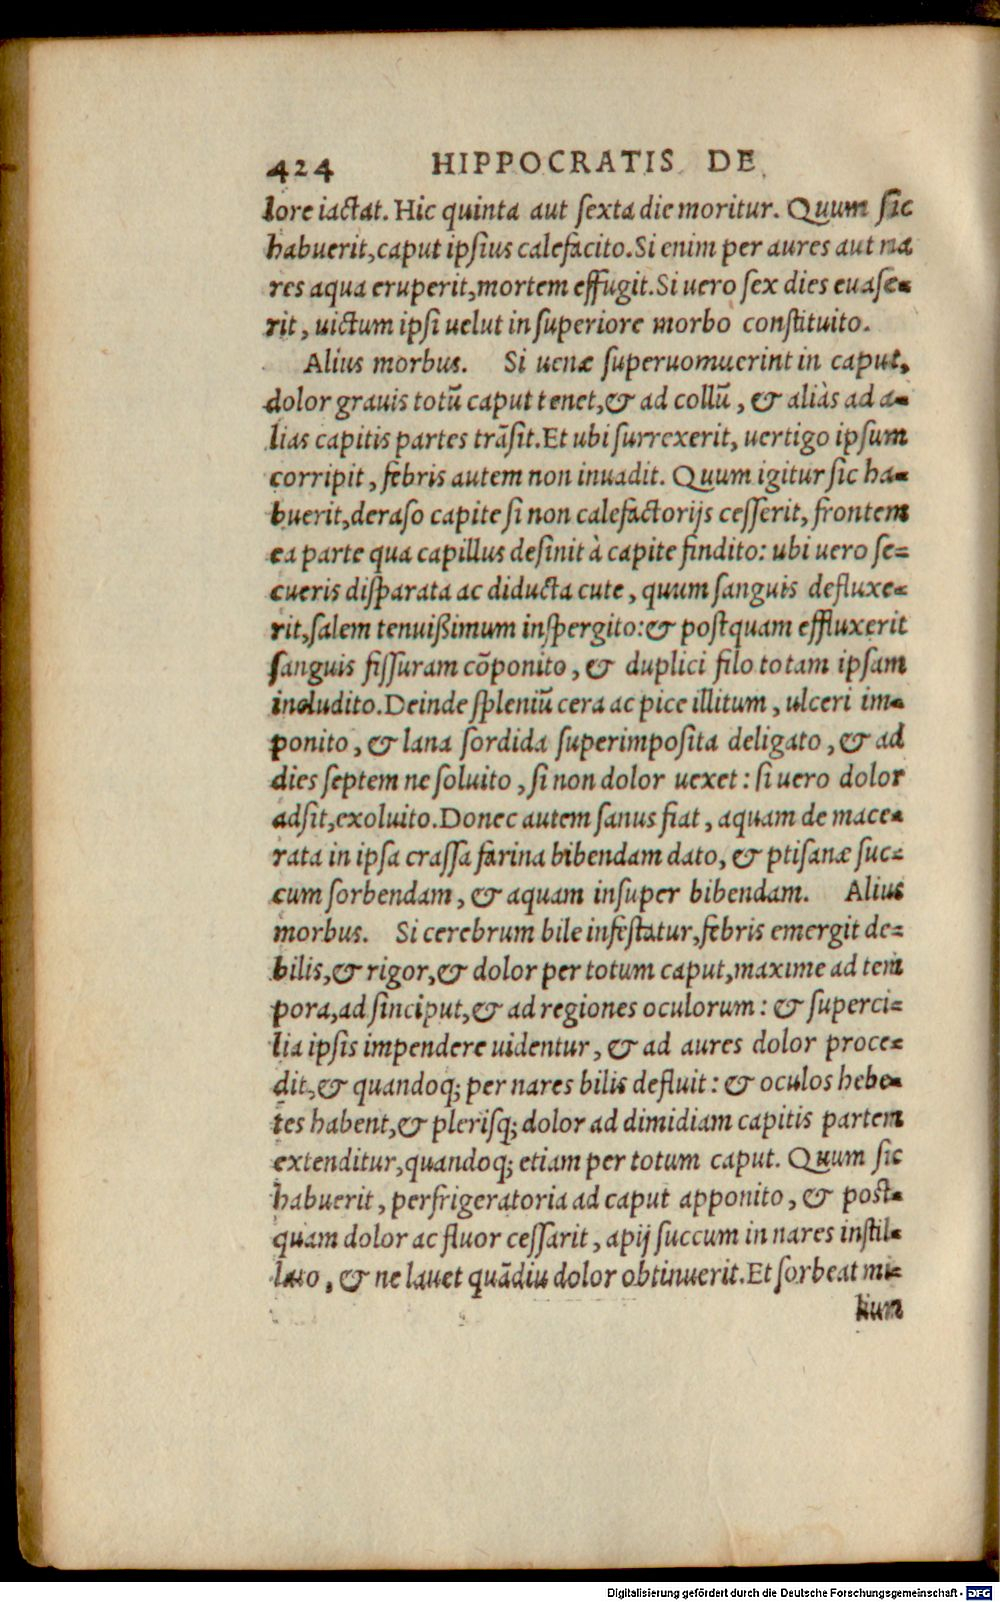 424 HIPPOCRATIS DE
lore iactat. Hic quinta aut sexta die moritur. Quum sic
habuerit, caput ipsius calefacito. Si enim per aures aut na
res aqua eruperit, mortem effugit. Si uero sex dies euase-
rit, uictum ipsi uelut in superiore morbo constituito.
Alius morbus. Si uenæ superuomuerint in caput,
dolor grauis totū caput tenet, & ad collū, & aliàs ad a-
lias capitis partes trāsit. Et ubi surrexerit, uertigo ipsum
corripit, febris autem non inuadit. Quum igitur sic ha-
buerit, deraso capite si non calefactorijs cesserit, frontem
ea parte qua capillus desinit à capite findito: ubi uero se-
cueris disparata ac diducta cute, quum sanguis defluxe-
rit, salem tenuißimum inspergito: & postquam effluxerit
sanguis fissuram cōponito, & duplici filo totam ipsam
includito. Deinde spleniū cera ac pice illitum, ulceri im-
ponito, & lana sordida superimposita deligato, & ad
dies septem ne soluito, si non dolor uexet: si uero dolor
adsit, exoluito. Donec autem sanus fiat, aquam de mace-
rata in ipsa crassa farina bibendam dato, & ptisanæ suc-
cum sorbendam, & aquam insuper bibendam. Alius
morbus. Si cerebrum bile infestatur, febris emergit de-
bilis, & rigor, & dolor per totum caput, maxime ad tem
pora, ad sinciput, & ad regiones oculorum: & superci-
lia ipsis impendere uidentur, & ad aures dolor proce-
dit, & quandoq; per nares bilis defluit: & oculos hebe-
tes habent, & plerisq; dolor ad dimidiam capitis partem
extenditur, quandoq; etiam per totum caput. Quum sic
habuerit, perfrigeratoria ad caput apponito, & post-
quam dolor ac fluor cessarit, apij succum in nares instil-
lato, & ne lauet quādiu dolor obtinuerit. Et sorbeat mi-
lium
Digitalisierung gefördert durch die Deutsche Forschungsgemeinschaft - DFG